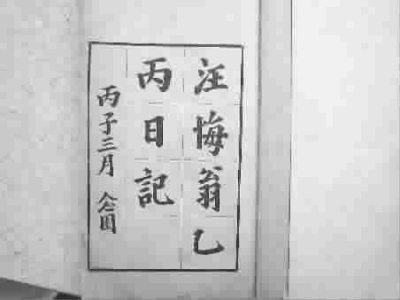 汪悔翁乙
丙日記
丙子三月